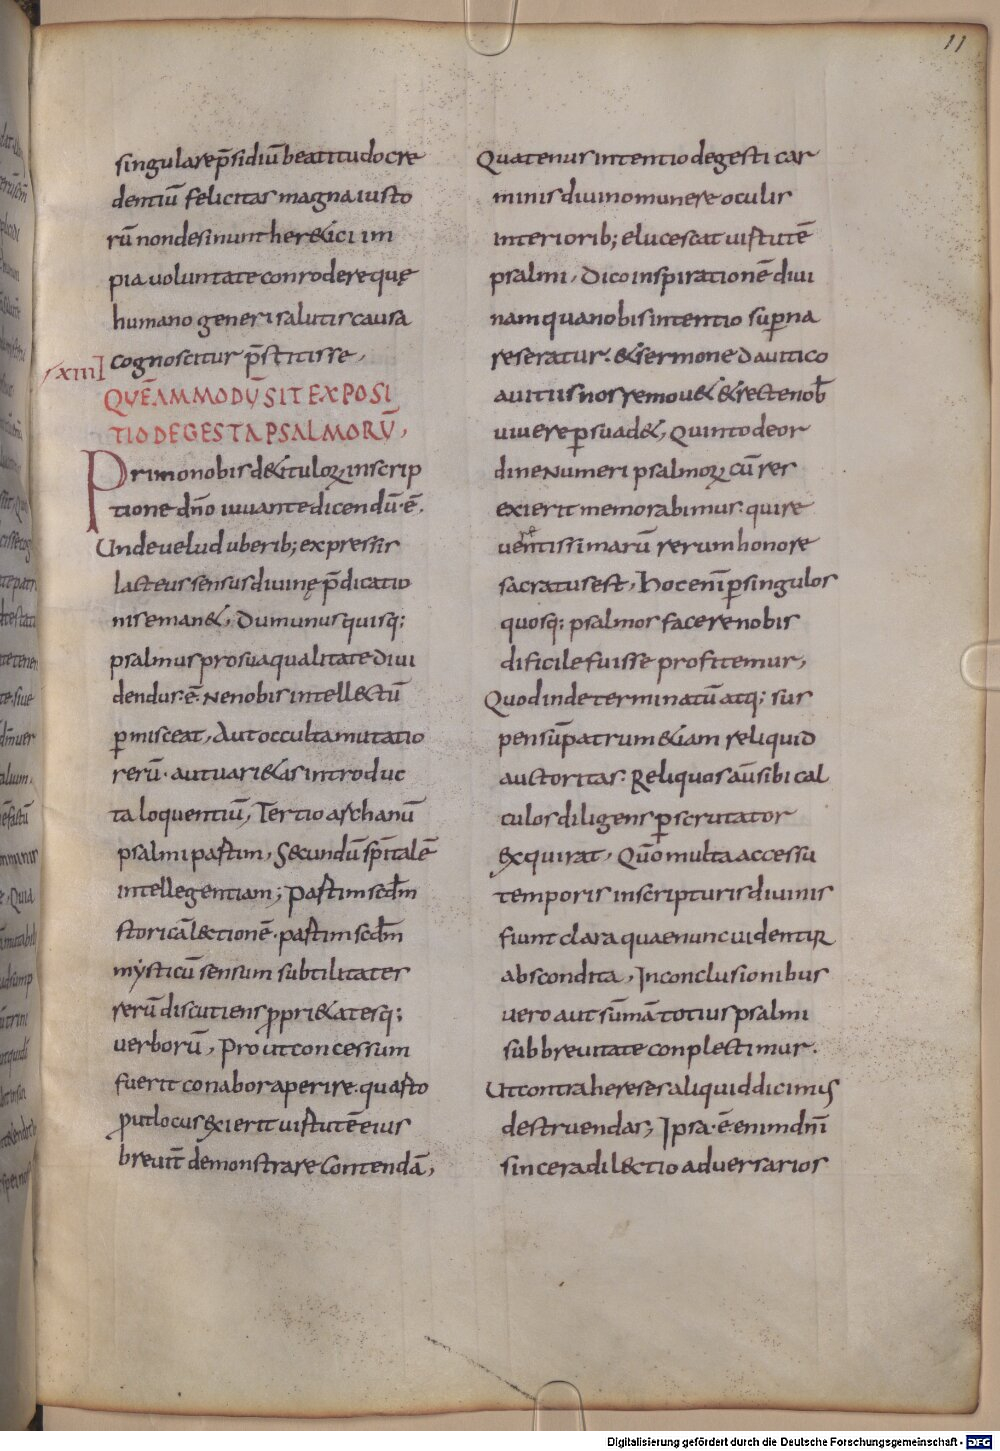 11
singulare p̄sidiū beatitudo cre
dentiū felicitas magna iusto
rū non desinunt her&ici im
pia uoluntate conrodere quę
humano generi salutis causa
cognoscitur p̄stitisse,
XIIII
QUĒAMMODŪ SIT EXPOSI
TIO DEGESTA PSALMORŪ,
Primo nobis de titulorꝝ inscrip
tione dn̄o iuuante dicendū·ē·
Unde uelud uberib; expressis
lacteus sensus diuinę p̄dicatio
nis eman&, Dum unus quisq;
psalmus pro sua qualitate diui
dendus·ē· Ne nobis intellectū
ꝑmisceat, Aut occulta mutatio
rerū· aut uari&as introduc
ta loquentiū, Tertio archanū
psalmi partim, Secundū spīitalē
intellegentiam; partim scd̄m
storicā l&tionē· partim scd̄m
mẏsticū sensum subtilitates
rerū discutiens ꝓpri&atesq;
uerborū, Prout concessum
fuerit conabor aperire· quarto
ꝓut locus exierit uirtutē eius
breuit̄ demonstrare contendā,
Quatenus intentio degesti car
minis diuino munere oculis
interiorib; elucescat uirtutē
psalmi, Dico inspirationē diui
nam qua nobis intentio suꝑna
reseratur· & sermone dauitico
a uitiis nos remou& & recte nob̄
uiuere ꝑsuad&, Quinto de or
dine Numeri psalmorꝝ cū res
exierit memorabimus· qui re
uerentissimarū rerum honore
sacratus est, hoc enī ꝑ singulos
quosq; psalmos facere nobis
dificile fuisse profitemur,
Quod indeterminatū atq; sus
pensū patrum &iam reliquid
auctoritas· Reliquos aū sibi cal
culos diligens ꝑscrutator
exquirat, Qm̄o multa accessu
temporis in scripturis diuinis
fiunt clara quae nunc uidentur
abscondita, In conclusionibus
uero aut sūmā totius psalmi
sub breuitate conplectimur·
Ut contra hereses aliquid dicimus
destruendas; Ipsa·ē·enim dn̄i
sincera dil&tio aduersarios
Digitalisierung gefördert durch die Deutsche Forschungsgemeinschaft - DFG